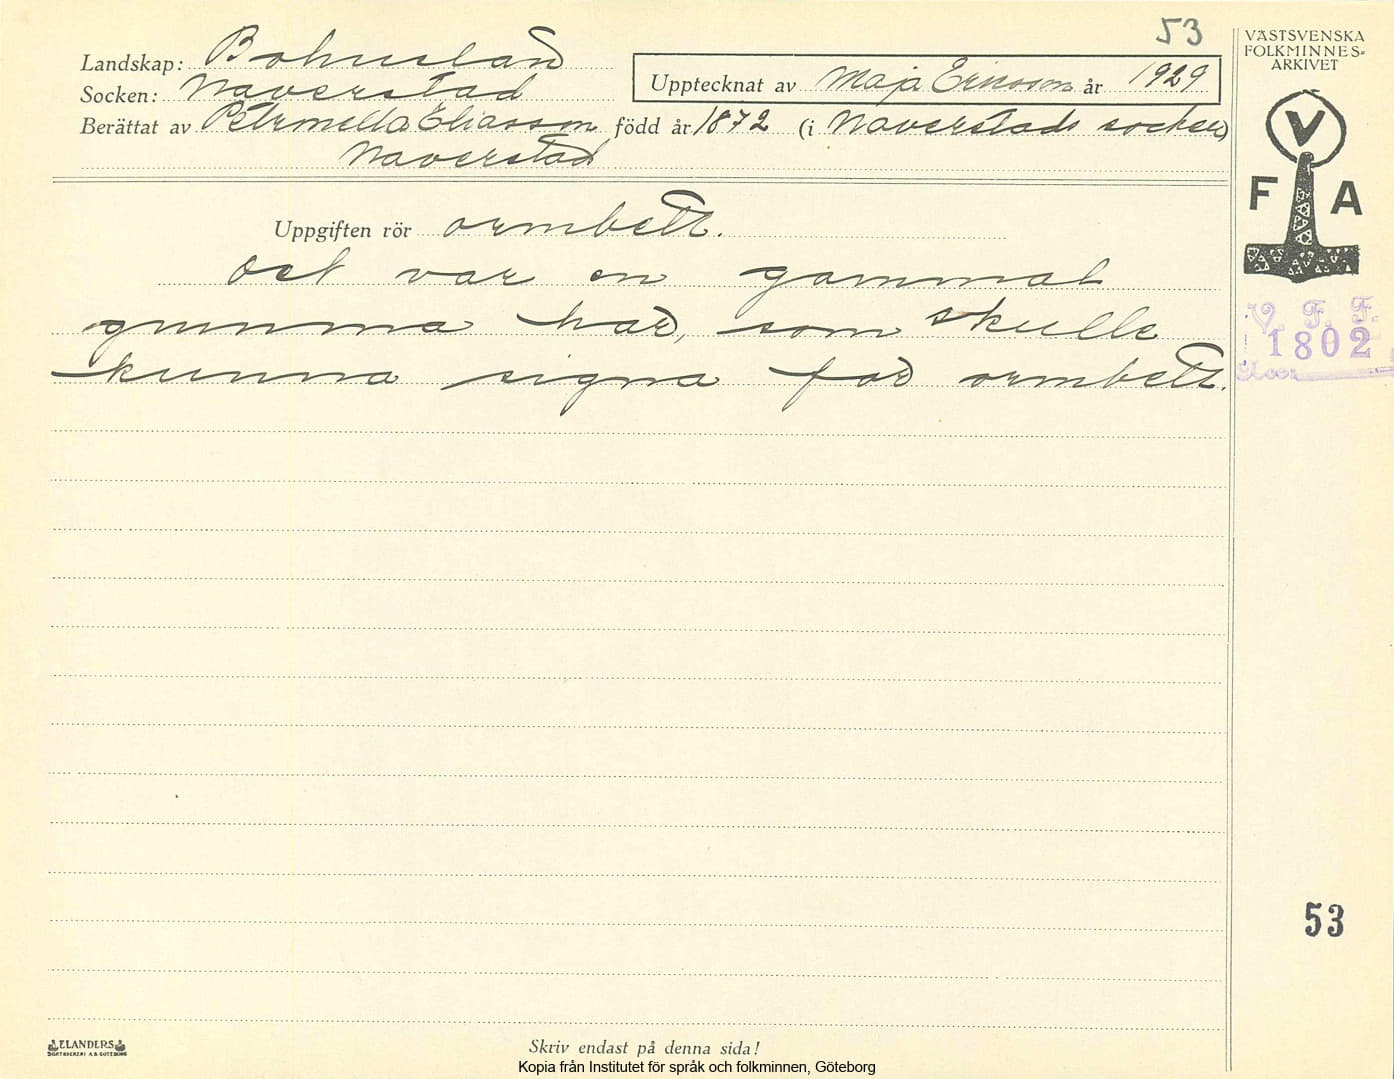 53
VÄSTSVENSKA
FOLKMINNES-
ARKIVET
Landskap: Bohuslän
Socken: Naverstad
Upptecknat av Maja Ericsson år 1929
Berättat av Petronella Eliasson född år 1872 (i Naverstads socken)
Naverstad
V
F A
Uppgiften rör ormbett.
Det var en gammal
gumma här, som skulle
kunna signa för ormbett.
V. F. F.
1802
53
ELANDERS
BOKTRYCKERI A.B. GÖTEBORG
Skriv endast på denna sida!
Kopia från Institutet för språk och folkminnen, Göteborg